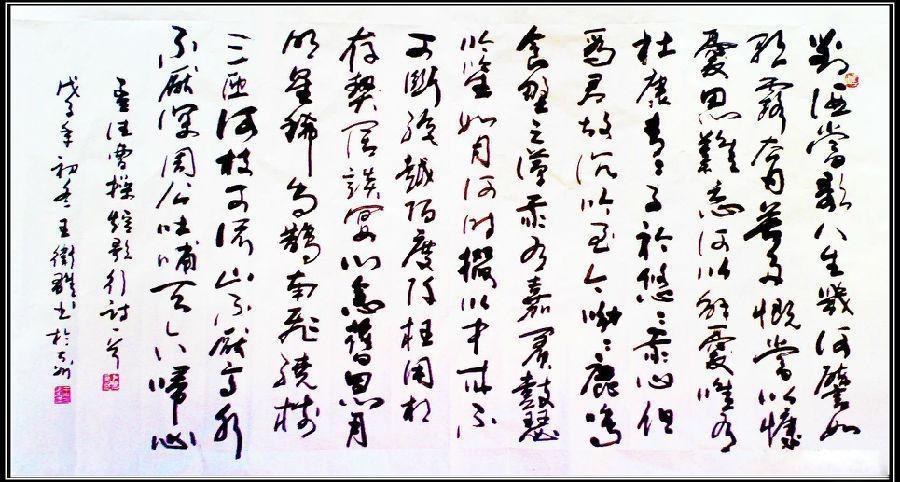 對酒當歌人生幾何譬如
朝露去日苦多慨當以慷
憂思難忘何以解憂唯有
杜康青々子衿悠々我心但
為君故沉吟至今呦々鹿鳴
食野之苹我有嘉賓鼓瑟
吹笙如月何时掇以中來不
可斷絕越陌度阡枉用相
存契闊談宴心念舊恩月
明星稀烏鵲南飛繞樹
三匝何枝可依山不厭高水
不厭深周公吐哺天下歸心
孟德曹操短歌行詩一首
戊子年初冬王衛书於